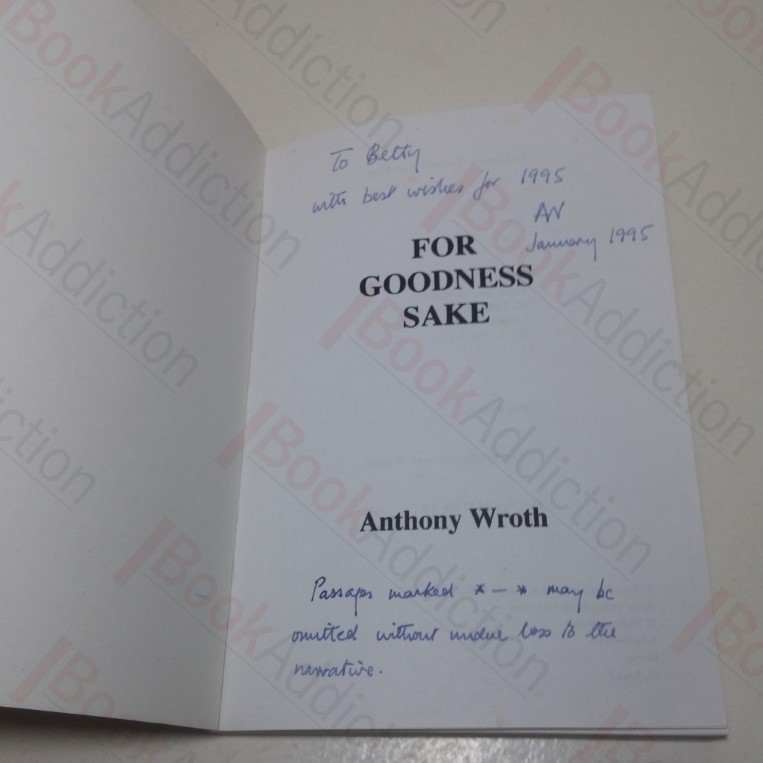 To Betty
with best wishes for 1995
AW
January 1995
FOR
GOODNESS
SAKE
Anthony Wroth
Passages marked *—* may be
omitted without undue loss to the
narrative.
BookAddiction
BookAddiction
BookAddiction
BookAddiction
BookAddiction
BookAddiction